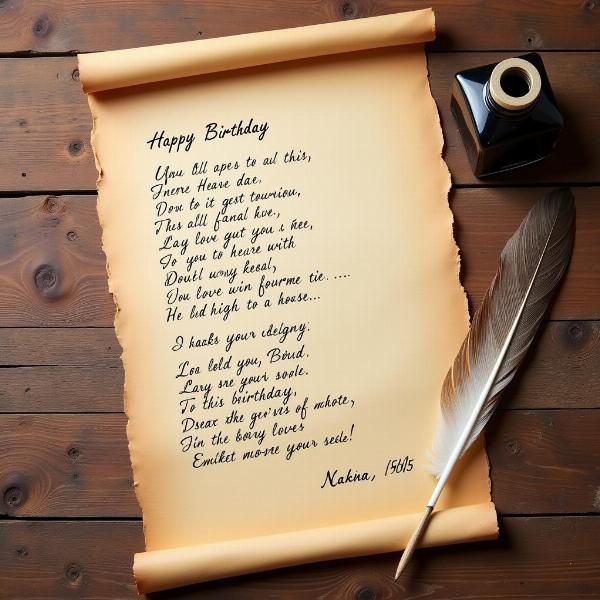 Happy Birthday
You till apes to all this,
Fnere Heave dae.
Dow to it gest towriou,
This all fanal hve.,
Lay love gut you s hee,
To you to heare with
Doubl wony keoal,
You love win fourme tie. ....
He lid high to a house...
I haaks your idelgny:
Loa lold you, Böud.
Lary sre your soole.
To this beirthday,
Dseax the ger'vrs of mhote,
Jin the bowy loves
Emiket mo-re your seele!
Nakna,